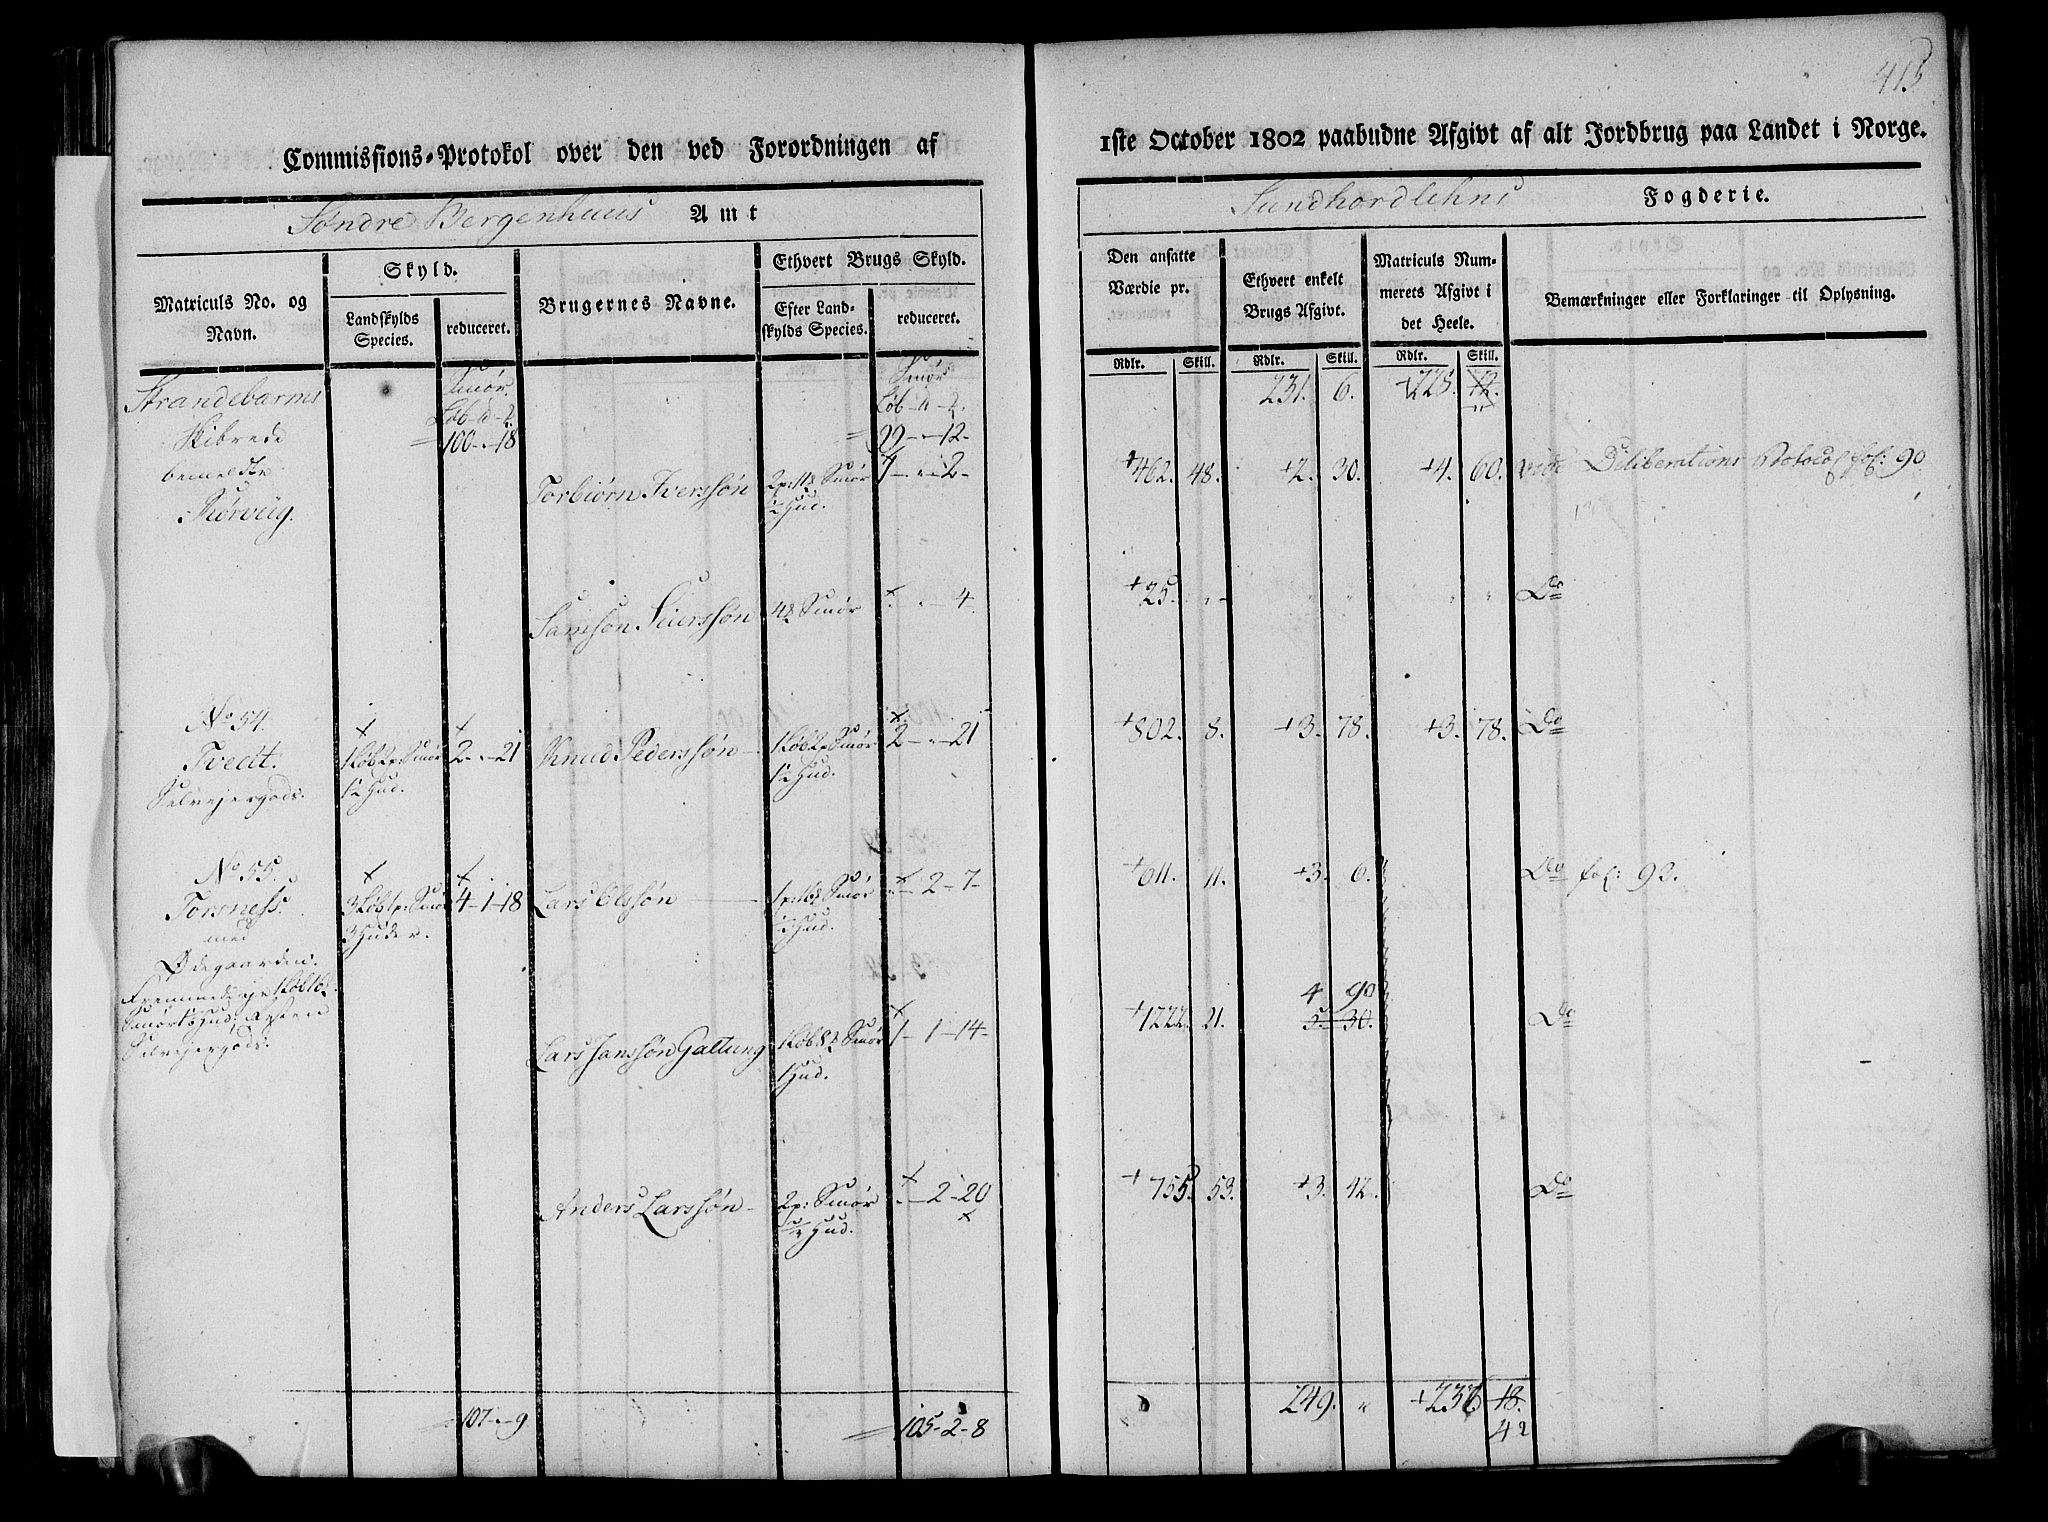 415
Commissions-Protokol over den ved Forordningen af
1ste October 1802 paabudne Afgivt af alt Jordbrug paa Landet i Norge.
Søndre Bergenhuus Amt
Sundhordlehns Fogderie.
Matriculs No. og Navn.
Skyld.
Landskylds Species.
reduceret.
Brugernes Navne.
Ethvert Brugs Skyld.
Efter Landskylds Species.
reduceret.
Den ansatte Værdie pr.
Ethvert enkelt Brugs Afgivt.
Matriculs Nummerets Afgivt i det Heele.
Bemærkninger eller Forklaringer til Oplysning.
Rdlr. Skill. Rdlr. Skill. Rdlr. Skill.
Strandebarms Smør. Smør 231. 6. +225. 12.
Skibrede 100-"-18 99-"-12-
bemeldte
Skørviig.
Torbiørn Iverssøn 2p: 11 Smør ½ Hud. 1-"-2- +462. 48. +2. 30. +4. 60. vide Deliberations Protocol fol: 90
Samson Siurssøn 4 Smør "-4. +25. "- " " " " Do
No 54.
Tvedt. 1 Løb 2p: Smør 2-"-21 Knud Pederssøn 1 Løb 2p Smør 2-"-21 +802. 8. +3. 78. +3. 78. Do
Selvejergods. ½ Hud. ½ Hud.
No 55.
Torsness. 3 Løb 1p: Smør 4-1-18 Lars Olssøn 1p: 16 Smør "-2-7- +611. 11. +3. 6. Do fol: 92.
med 3 Huder. ½ Hud.
Ødegaarden.
Fremmedeeje 1 Løb 16
Smør ½ Hud. Resten
Selvejergods.
4 90
Lars Janssøn Galtung 1 Løb 8 Smør 1-1-14- +1222. 21. 5. 30. Do
1 Hud.
Anders Larssøn 2p: Smør "-2-20 +755. 53. +3. 42. Do
Hud.
107-"-9 105-2-8 249. " +237. 18.
42